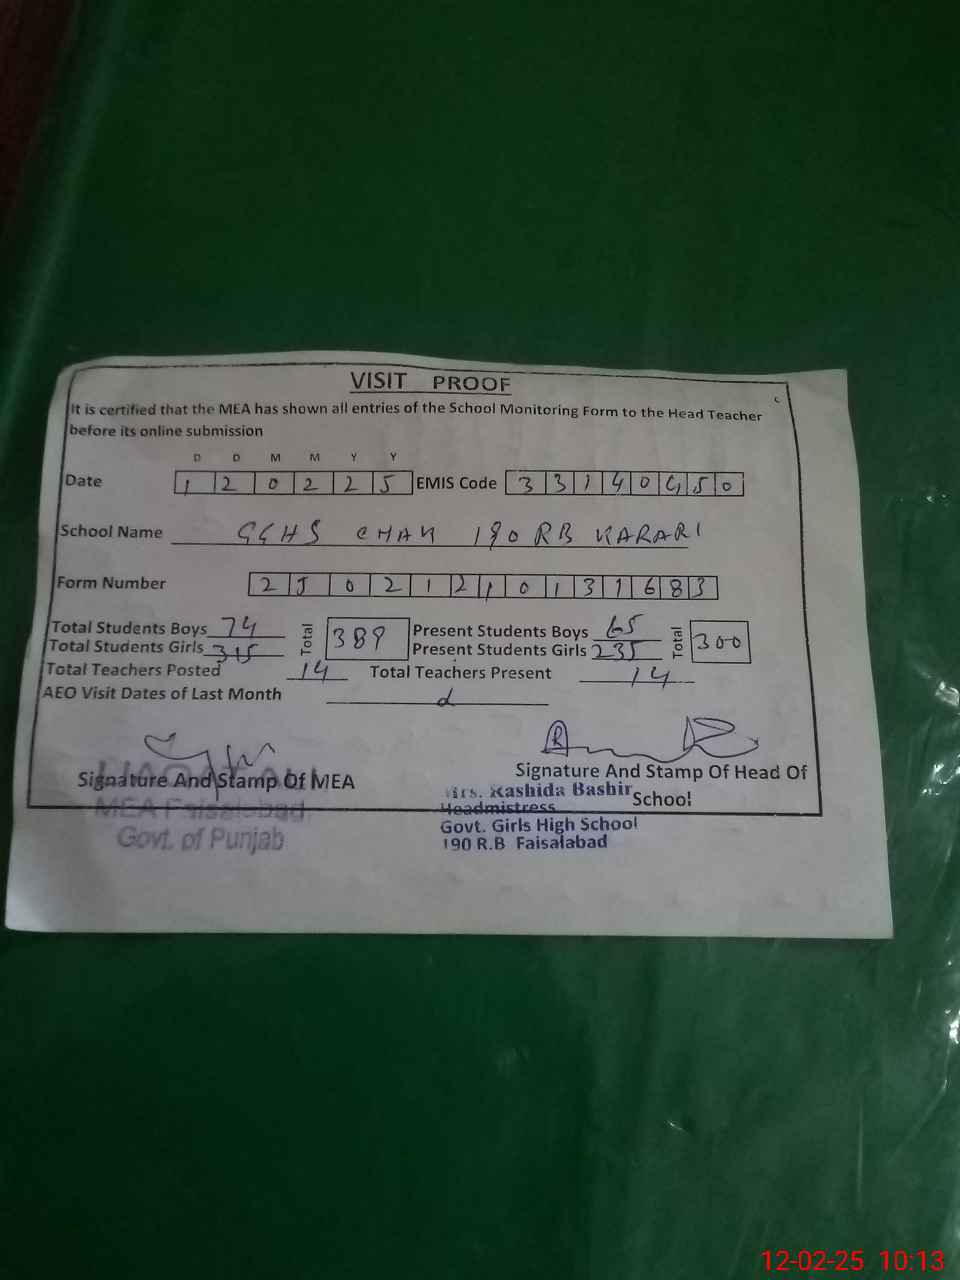 VISIT PROOF
It is certified that the MEA has shown all entries of the School Monitoring Form to the Head Teacher
before its online submission
D D M M Y Y
Date 1 2 0 2 2 5 EMIS Code 3 3 1 4 0 4 5 0
School Name GGHS CHAK 190 RB KARARI
Form Number 2 5 0 2 1 2 1 0 1 3 1 6 8 3
Total Students Boys 74 Total 389 Present Students Boys 65 Total 300
Total Students Girls 315 Present Students Girls 235
Total Teachers Posted 14 Total Teachers Present 14
AEO Visit Dates of Last Month
Signature And Stamp Of MEA
Signature And Stamp Of Head Of
School
MEA Faisalabad
Govt. of Punjab
Mrs. Rashida Bashir
Headmistress
Govt. Girls High School
190 R.B Faisalabad
12-02-25 10:13